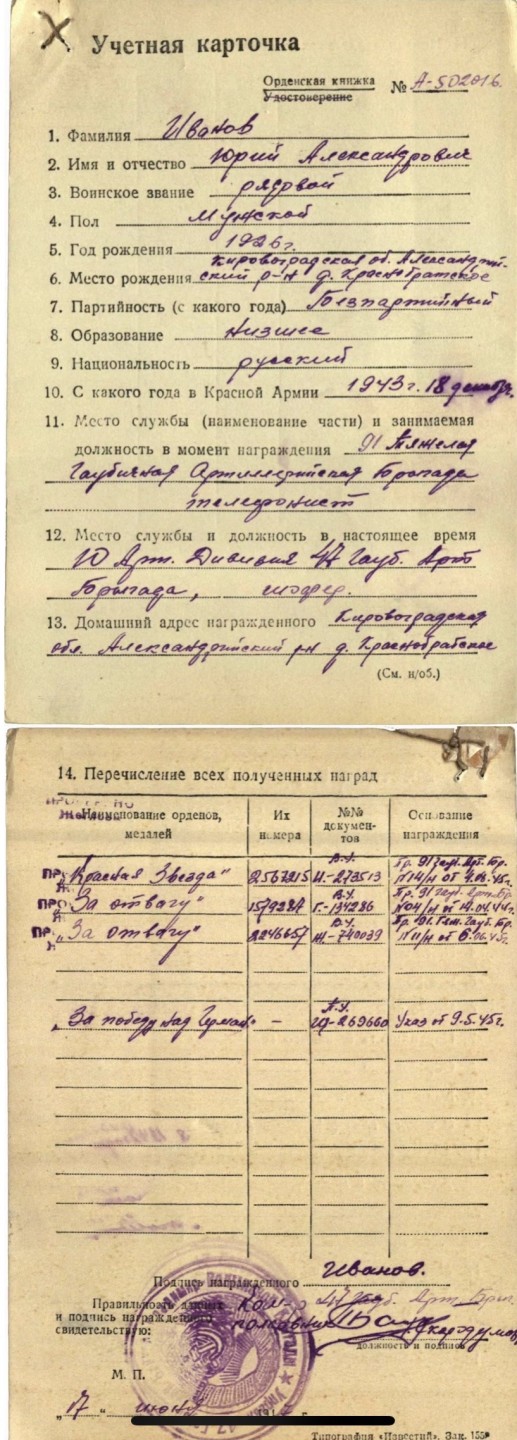 Учетная карточка
Орденская книжка
Удостоверение
№ А-502016.
1. Фамилия Иванов
2. Имя и отчество Юрий Александрович
3. Воинское звание рядовой
4. Пол мужской
5. Год рождения 1926 г.
Кировоградская об. Александрий-
6. Место рождения ский р-н д. Краснобратское
7. Партийность (с какого года) Безпартийный
8. Образование низшее
9. Национальность русский
10. С какого года в Красной Армии 1943 г. 18 декабря
11. Место службы (наименование части) и занимаемая
должность в момент награждения 91 Тяжелая
Гаубичная Артиллерийская Бригада
телефонист
12. Место службы и должность в настоящее время
10 Арт. Дивизия 47 Гауб. Арт
Бригада, шофер.
13. Домашний адрес награжденного Кировоградская
обл. Александрийский р-н д. Краснобратское
(См. н/об.)
14. Перечисление всех полученных наград
Наименование орденов, медалей
Их номера
№№ документов
Основание награждения
„Красная Звезда" 2567215
„За отвагу" Г-134286
„За отвагу" 2246657 Ж-740039
„За победу над Герман." - Указ от 9.5.45г.
Подпись награжденного Иванов.
Правильность данных
и подпись награжденного
свидетельствую:
Ком-р 47 Гауб. Арт. Бриг.
полковник
должность и подпись
М. П.
„17" июня
Типография «Известий». Зак. 155